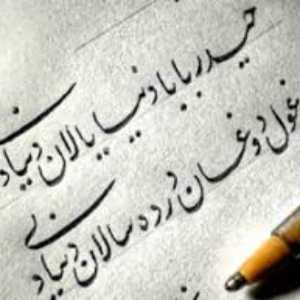 حیدربابا دنیا یالان دنیادی
نوغول دوغان درده سالان دنیادی